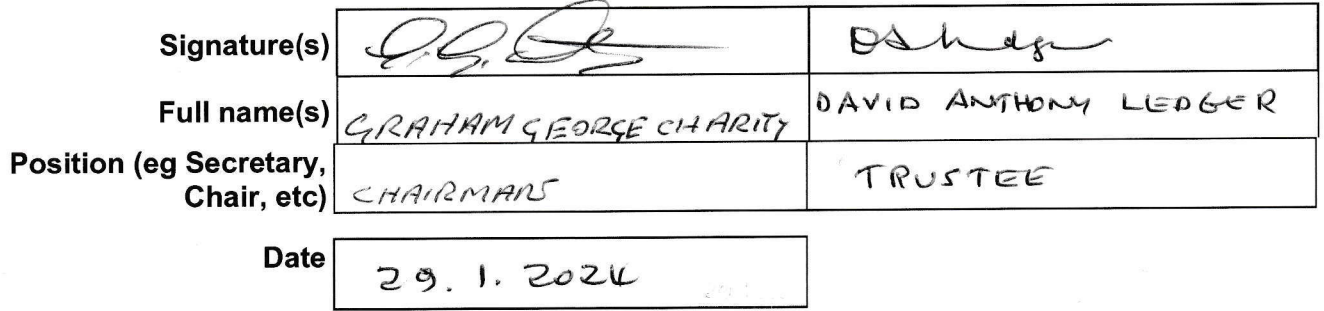 Signature(s)
Full name(s) GRAHAM GEORGE CHARITY DAVID ANTHONY LEDGER
Position (eg Secretary,
Chair, etc) CHAIRMAN TRUSTEE
Date 29.1.2024